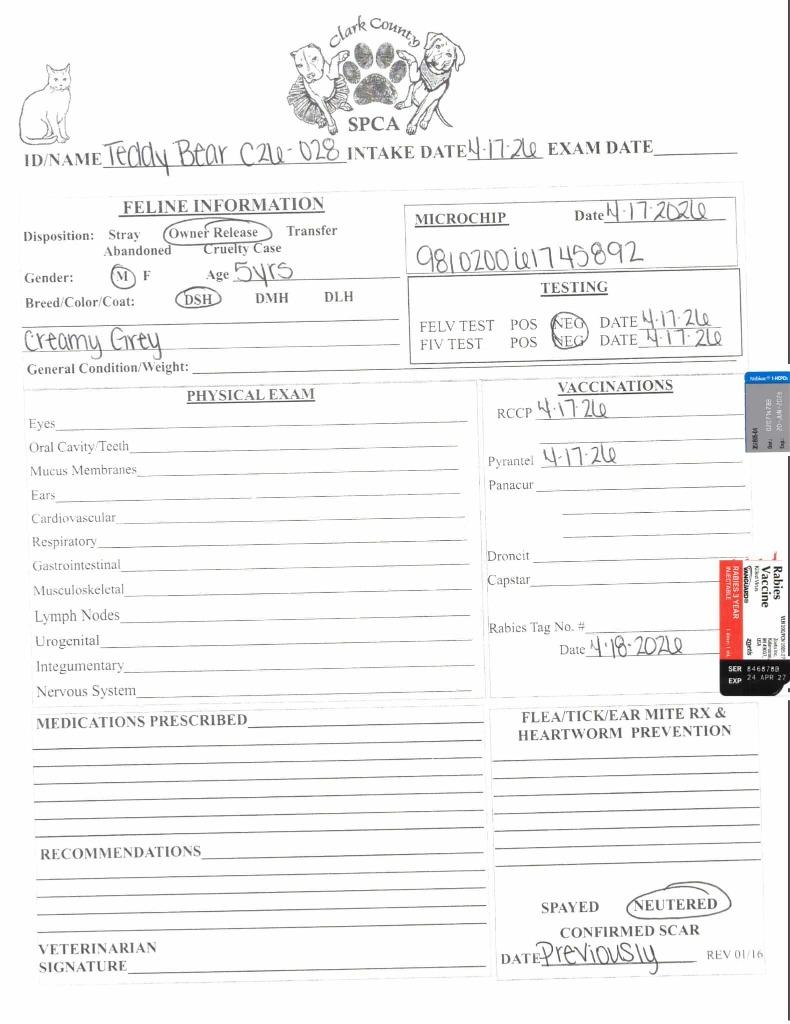 Clark County
SPCA
ID/NAME Teddy Bear C26-028 INTAKE DATE 4-17-26 EXAM DATE
FELINE INFORMATION
Disposition: Stray Owner Release Transfer
Abandoned Cruelty Case
Gender: M F Age 5yrs
Breed/Color/Coat: DSH DMH DLH
Creamy Grey
General Condition/Weight:
MICROCHIP Date 4-17-2026
981020061745892
TESTING
FELV TEST POS NEG DATE 4-17-26
FIV TEST POS NEG DATE 4-17-26
PHYSICAL EXAM
Eyes
Oral Cavity/Teeth
Mucus Membranes
Ears
Cardiovascular
Respiratory
Gastrointestinal
Musculoskeletal
Lymph Nodes
Urogenital
Integumentary
Nervous System
VACCINATIONS
RCCP 4-17-26
Pyrantel 4-17-26
Panacur
Droncit
Capstar
Rabies Tag No. #
Date 4-18-2026
Rabies
Vaccine
Killed Virus
VANGUARD®
RABIES 3 YEAR
INJECTABLE
zoetis
SER 846878B
EXP 24 APR 27
MEDICATIONS PRESCRIBED
RECOMMENDATIONS
VETERINARIAN
SIGNATURE
FLEA/TICK/EAR MITE RX &
HEARTWORM PREVENTION
SPAYED NEUTERED
CONFIRMED SCAR
DATE Previously REV 01/16